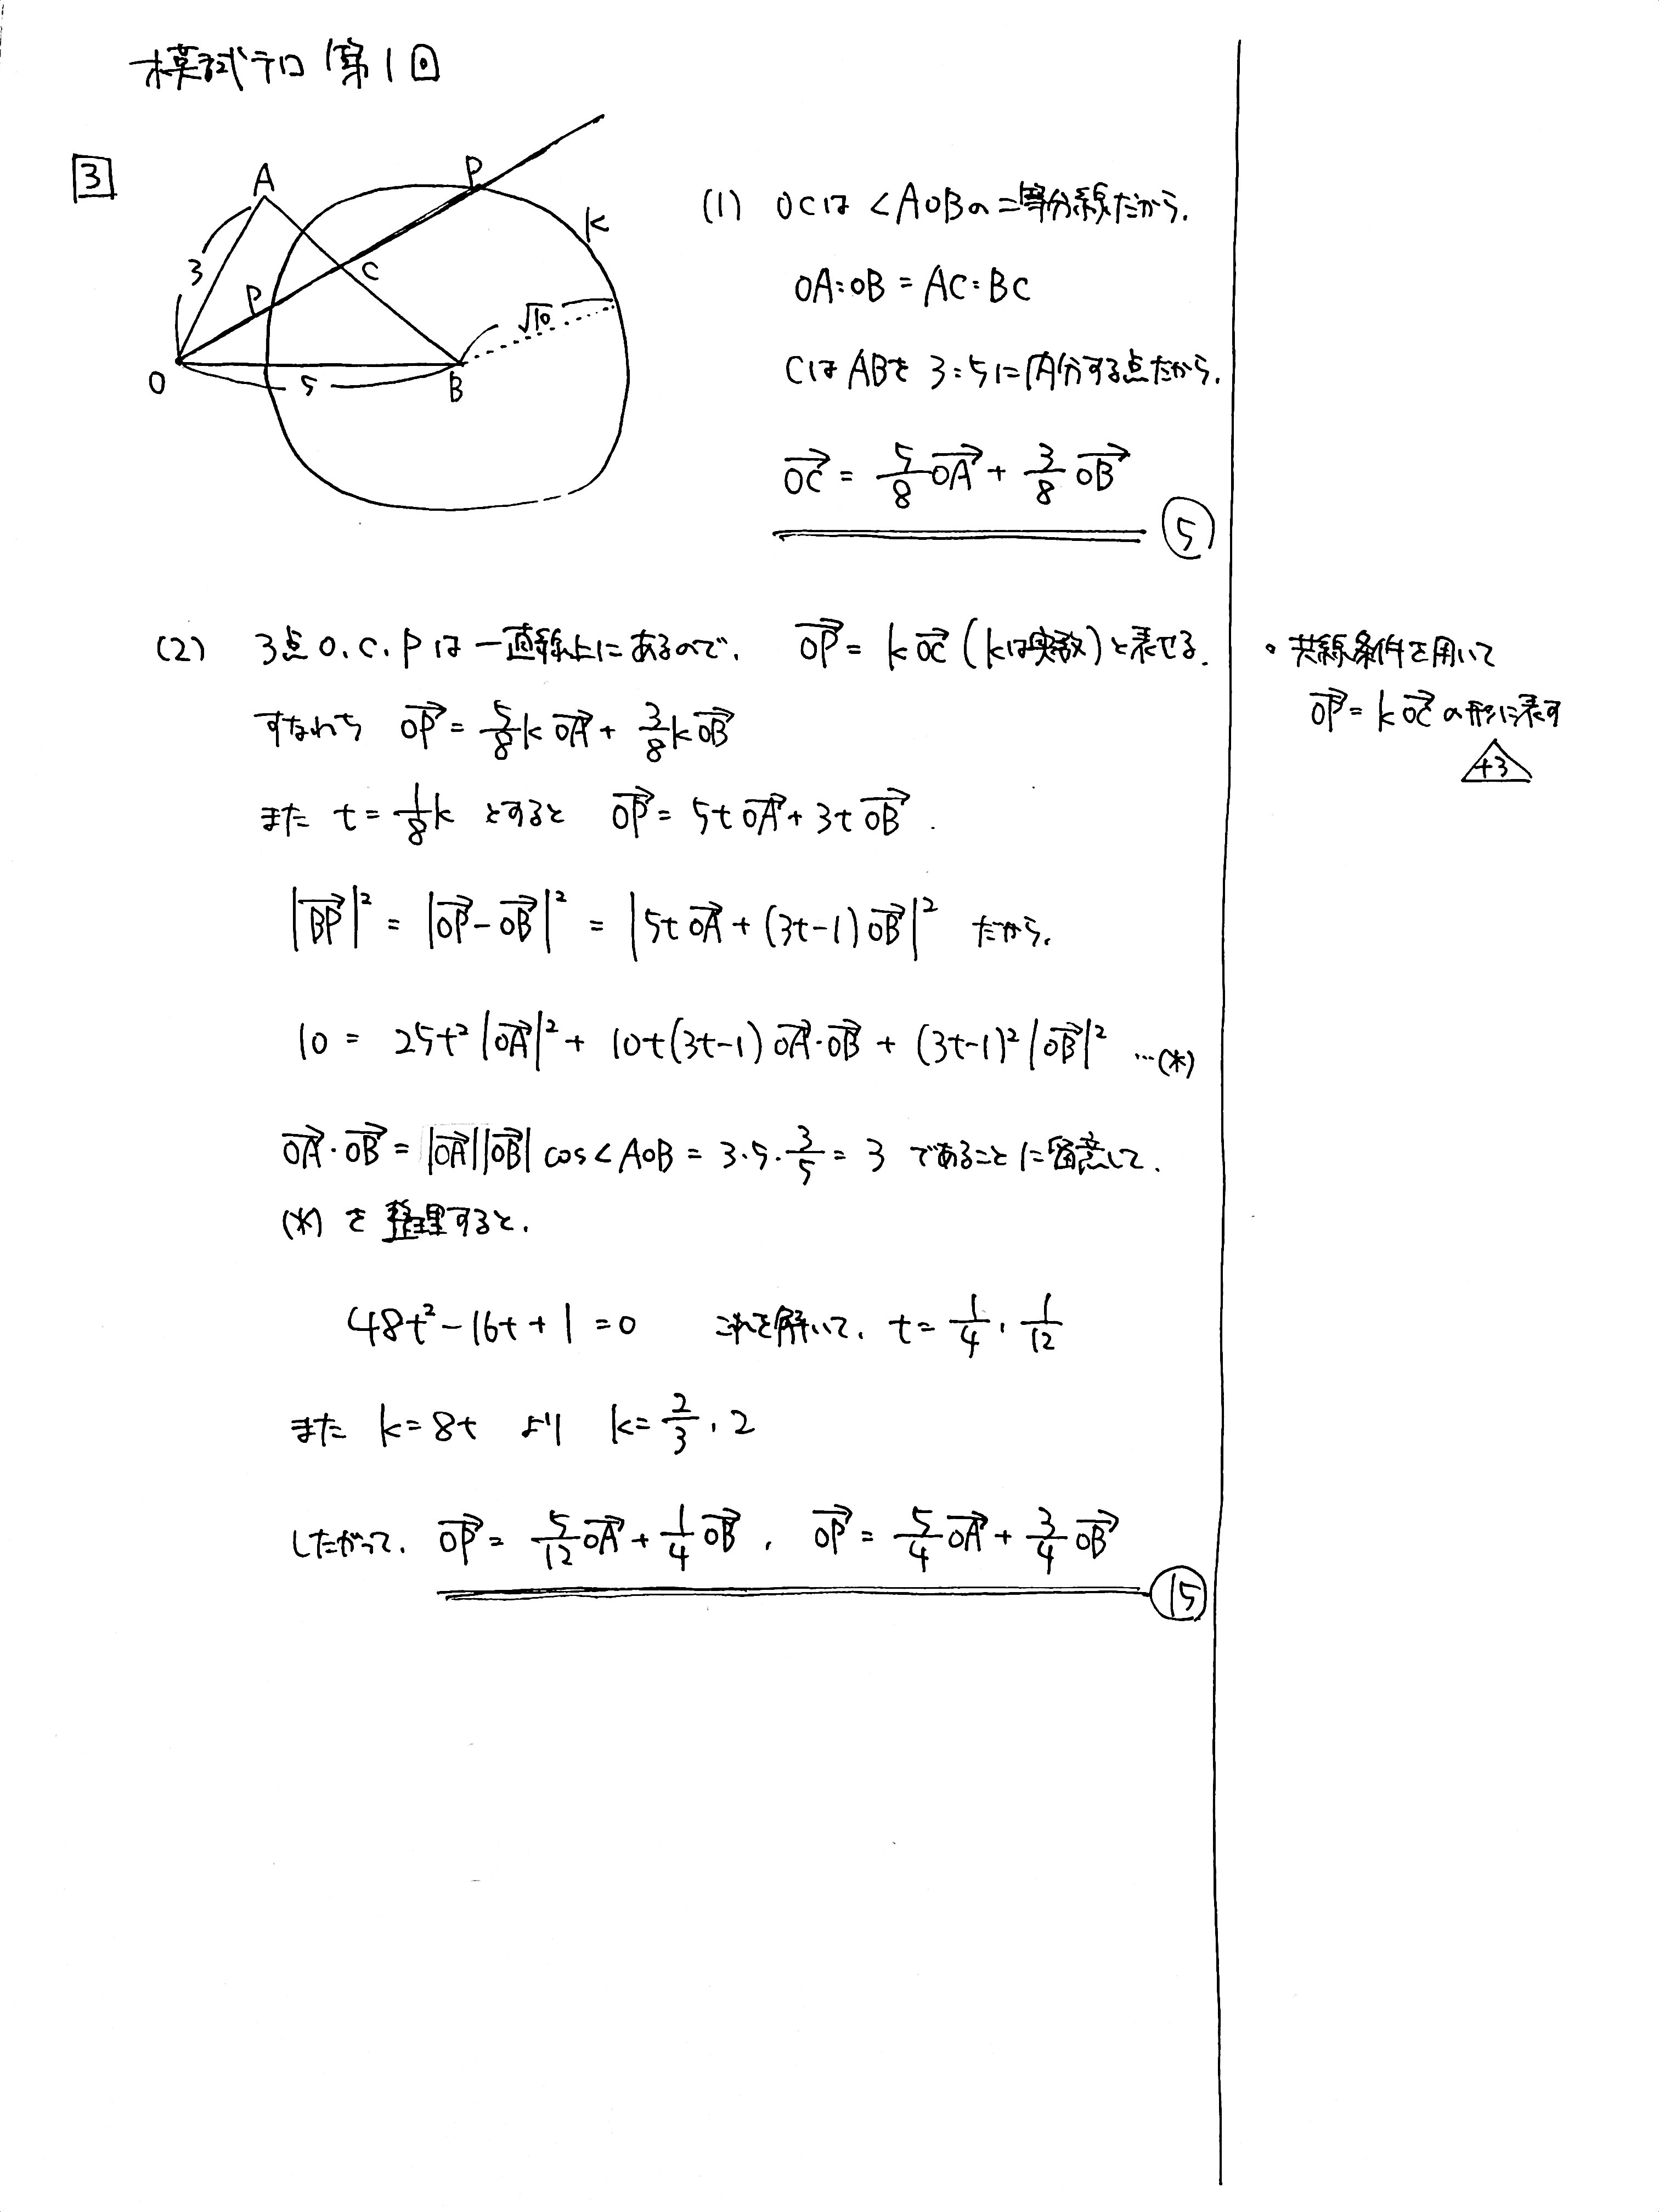 模試テロ 第1回
3
A
P
k
3
C
P
√10
O
5
B
(1) OCは∠AOBの二等分線だから、
OA:OB = AC:BC
CはABを 3:5に内分する点だから、
→OC = 5/8 →OA + 3/8 →OB
⑤
(2) 3点O、C、Pは一直線上にあるので、 →OP = k→OC (kは実数)と表せる.
すなわち →OP = 5/8 k→OA + 3/8 k→OB
また t = 1/8 k とすると →OP = 5t→OA + 3t→OB .
|→BP|² = |→OP - →OB|² = |5t→OA + (3t-1)→OB|² だから、
10 = 25t²|→OA|² + 10t(3t-1)→OA・→OB + (3t-1)²|→OB|² …(*)
→OA・→OB = |→OA||→OB| cos∠AOB = 3・5・3/5 = 3 であることに留意して、
(*) を整理すると、
48t² - 16t + 1 = 0 これを解いて、 t = 1/4 , 1/12
また k = 8t より k = 2/3 , 2
したがって、 →OP = 5/12 →OA + 1/4 →OB , →OP = 5/4 →OA + 3/4 →OB
⑮
・共線条件を用いて
→OP = k→OC の形に表す
+3